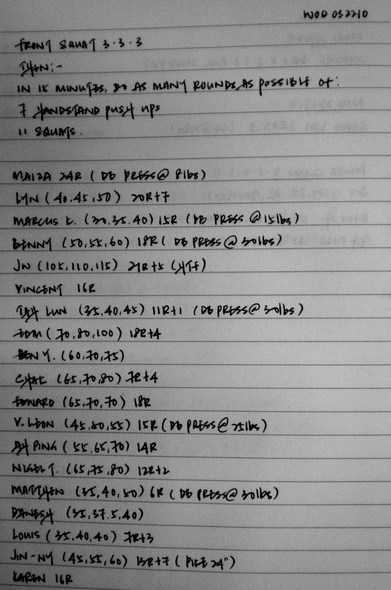 WOD 052210
FRONT SQUAT 3·3·3
THEN:-
IN 15 MINUTES, DO AS MANY ROUNDS AS POSSIBLE OF:
7 HANDSTAND PUSH UPS
11 SQUATS.
MAIZA 24R (DB PRESS @ 8lbs)
LYN (40,45,50) 20R+7
MARCUS L. (30,35,40) 15R (DB PRESS @ 15lbs)
BENNY (50,55,60) 18R (DB PRESS @ 30lbs)
JW (105,110,115) 21R+5
VINCENT 16R
LUN (35,40,45) 11R+1 (DB PRESS @ 30lbs)
EDM (70,80,100) 18R+4
BEN Y. (60,70,75)
(65,70,80) 7R+4
EDWARD (65,70,70) 18R
V. LEON (45,50,55) 15R (DB PRESS @ 25lbs)
AH PING (55,65,70) 14R
NIGEL T. (65,75,80) 12R+2
MATTHEW (35,40,50) 6R (DB PRESS @ 30lbs)
DANESH (35,37.5,40)
LOUIS (35,40,40) 7R+3
JIN-NY (45,55,60) 13R+7 (PIKE 24")
KAREN 16R